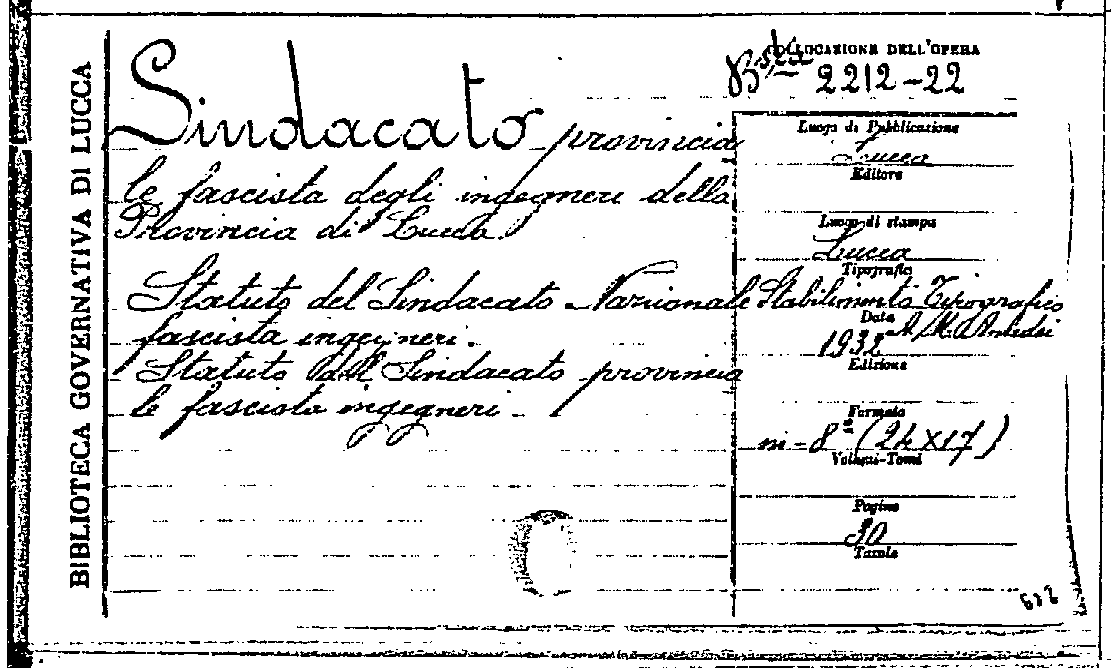 BIBLIOTECA GOVERNATIVA DI LUCCA
COLLOCAZIONE DELL'OPERA
Bsta 2212-22
Sindacato provincia
le fascista degli ingegneri della
Provincia di Lucca.
Statuto del Sindacato Nazionale
fascista ingegneri.
Statuto del Sindacato provincia
le fascista ingegneri.
Luogo di Pubblicazione
Lucca
Editore
Luogo di stampa
Lucca
Tipografia
Stabilimento Tipografico
A. M. Amedei
Data
1932
Edizione
Formato
in-8° (24x17)
Volumi-Tomi
Pagine
30
Tavole